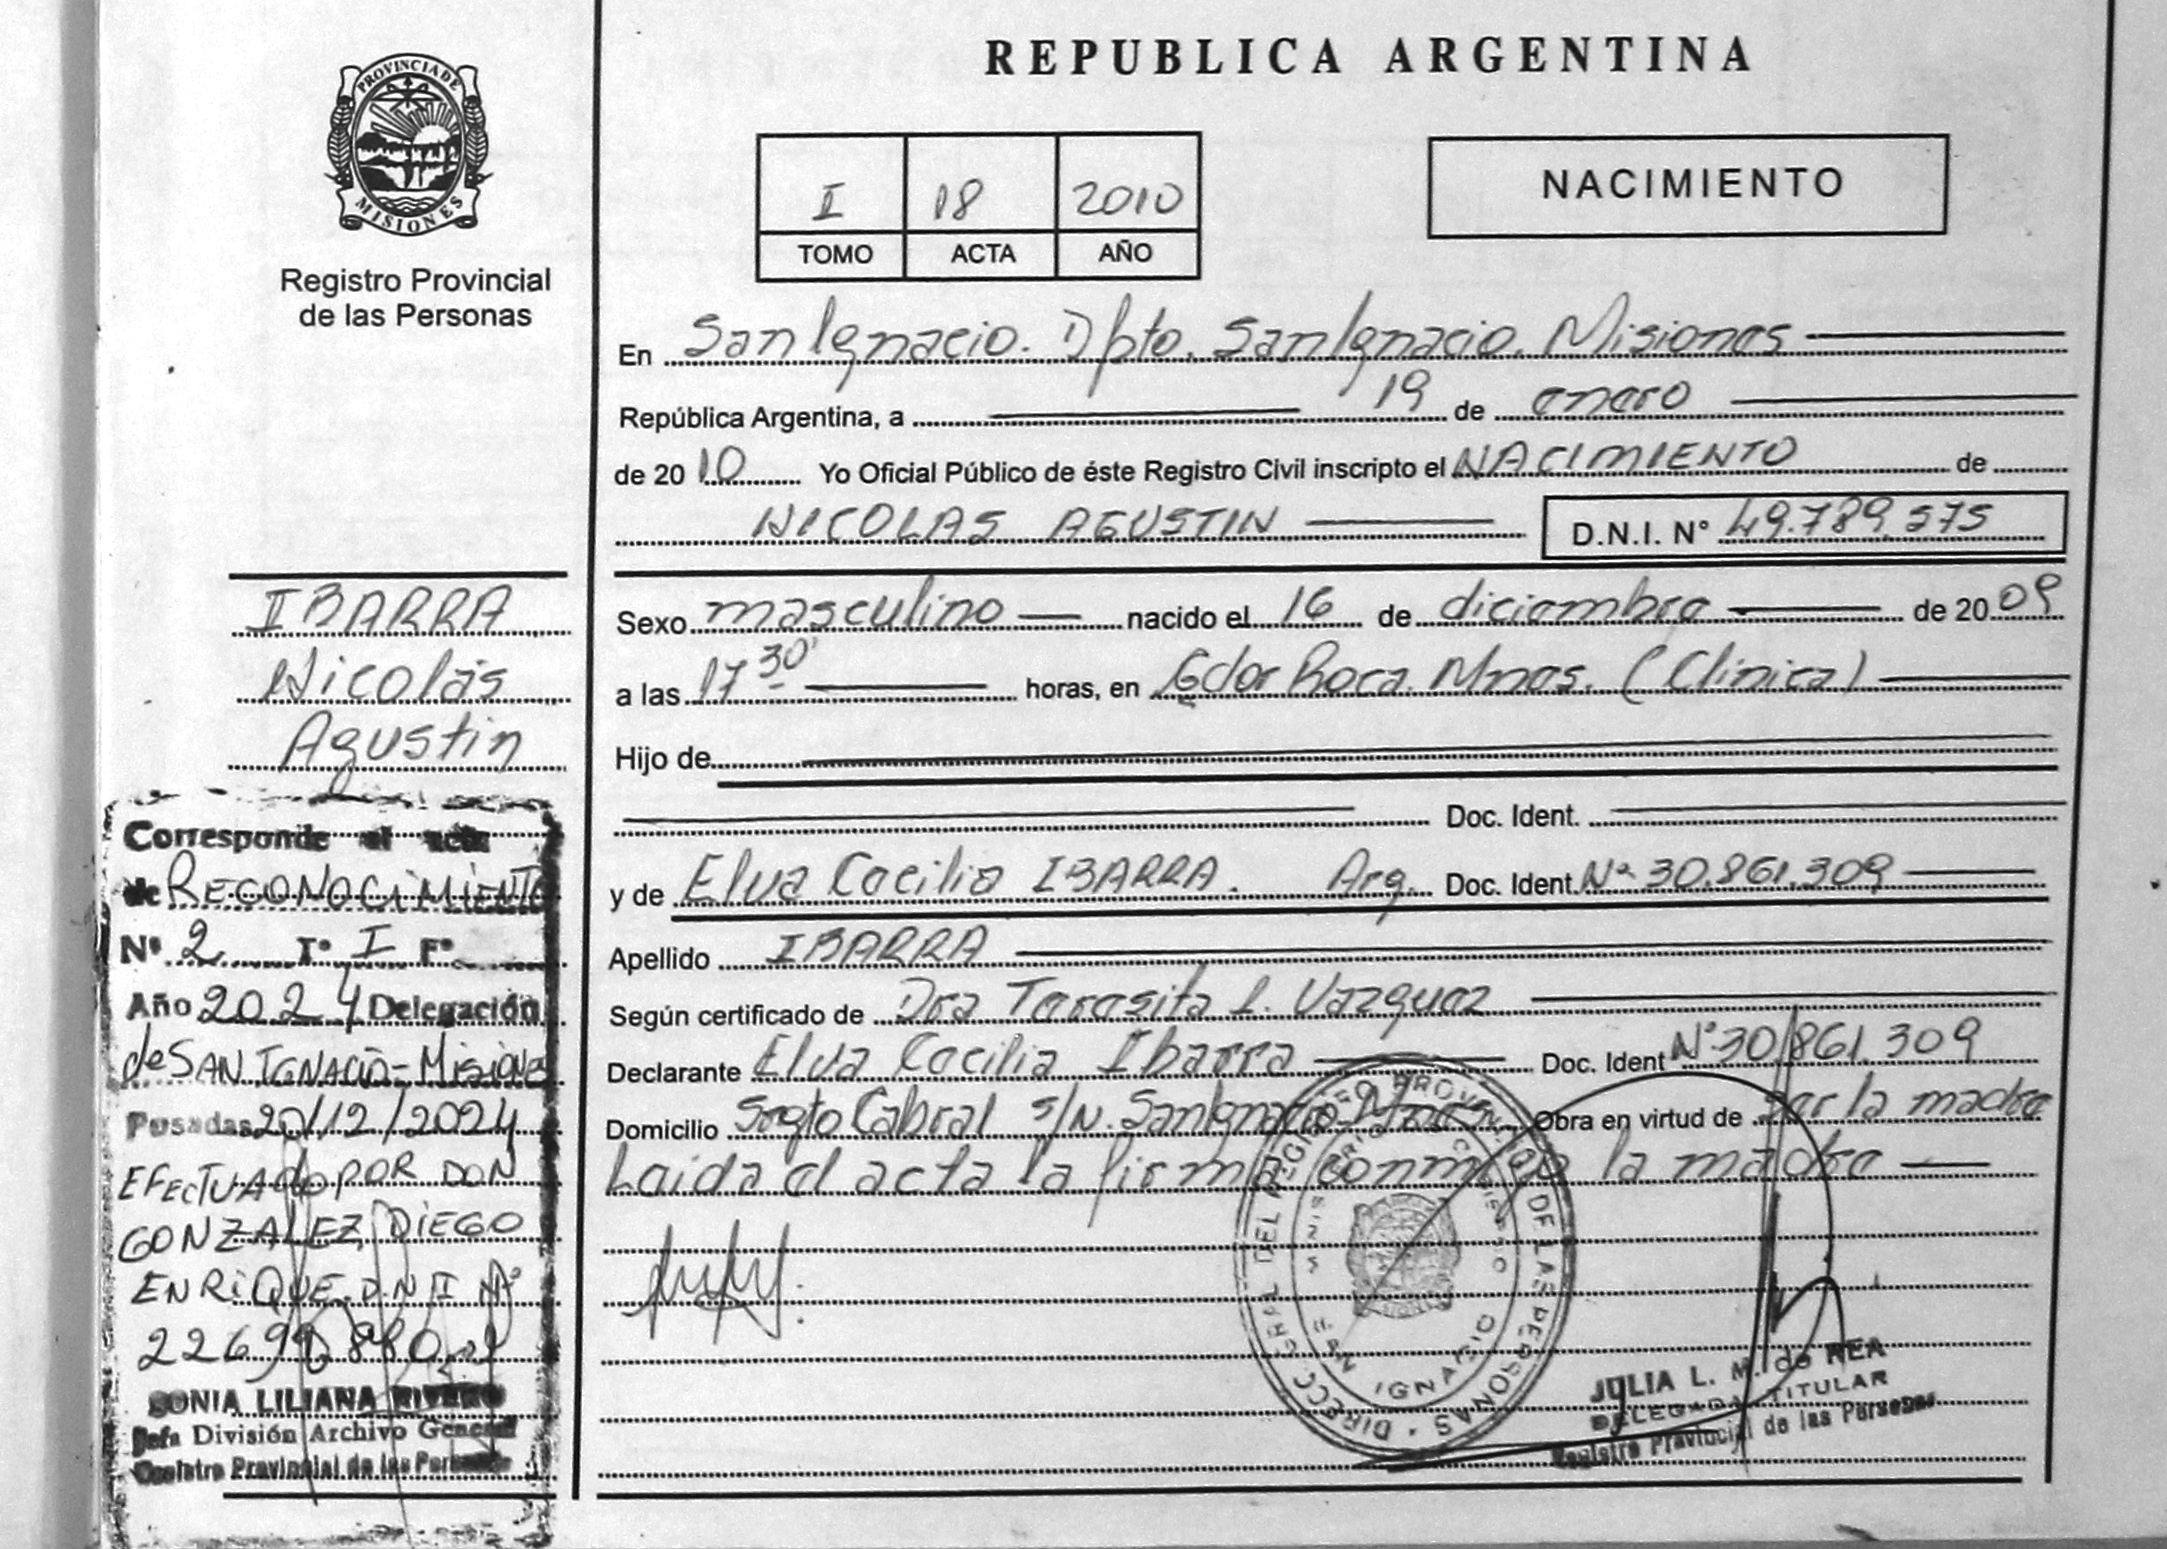 REPUBLICA ARGENTINA
PROVINCIA DE
MISIONES
Registro Provincial
de las Personas
I 18 2010
TOMO ACTA AÑO
NACIMIENTO
En San Ignacio. Dpto. San Ignacio. Misiones
República Argentina, a 19 de enero
de 2010 Yo Oficial Público de éste Registro Civil inscripto el NACIMIENTO de
NICOLAS AGUSTIN D.N.I. N° 49.789.575
Sexo masculino nacido el 16 de diciembre de 2009
a las 17 30' horas, en Gdor Roca. Mnes. (Clinica)
Hijo de
Doc. Ident.
y de Elva Cecilia IBARRA. Arg. Doc. Ident. Nº 30.861.309
Apellido IBARRA
Según certificado de Dra Teresita L. Vazquez
Declarante Elva Cecilia Ibarra Doc. Ident Nº 30.861.309
Domicilio Sagto Cabral s/N. San Ignacio-Mnes. Obra en virtud de ser la madre
Leida el acta la firma conmigo la madre
IBARRA
Nicolás
Agustin
Corresponde al acta
de RECONOCIMIENTO
Nº 2 Tº I Fº
Año 2024 Delegación
de SAN IGNACIO - MISIONES
Posadas 20/12/2024
EFECTUADO POR DON
GONZALEZ DIEGO
ENRIQUE D.N I Nº
SONIA LILIANA RIVERO
Jefa División Archivo General
Registro Provincial de las Personas
DIRECC. GRAL DEL REGISTRO PROVINCIAL DE LAS PERSONAS
SAN IGNACIO
JULIA L. M. de REA
DELEGADA TITULAR
Registro Provincial de las Personas